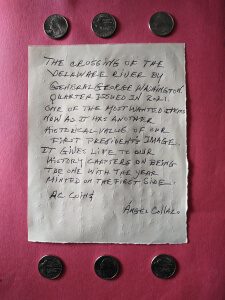 THE CROSSING OF THE
DELLWARE RIVER BY
GENERAL GEORGE WASHINGTON
QUARTER ISSUED IN 2021
ONE OF THE MOST WANTED ITEMS
NOW AS IT HAS ANOTHER
HISTORICAL VALUE OF OUR
FIRST PRESIDENTS IMAGE.
IT GIVES LIFE TO OUR
HISTORY CHAPTERS ON BEING
THE ONE WITH THE YEAR
MINTED ON THE FIRST SIDE.
AC COINS
ÁNGEL COLLAZO